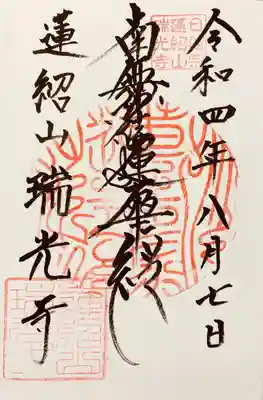 令和四年八月七日
日蓮宗
蓮紹山
瑞光寺
南無妙法蓮華経
蓮紹山瑞光寺